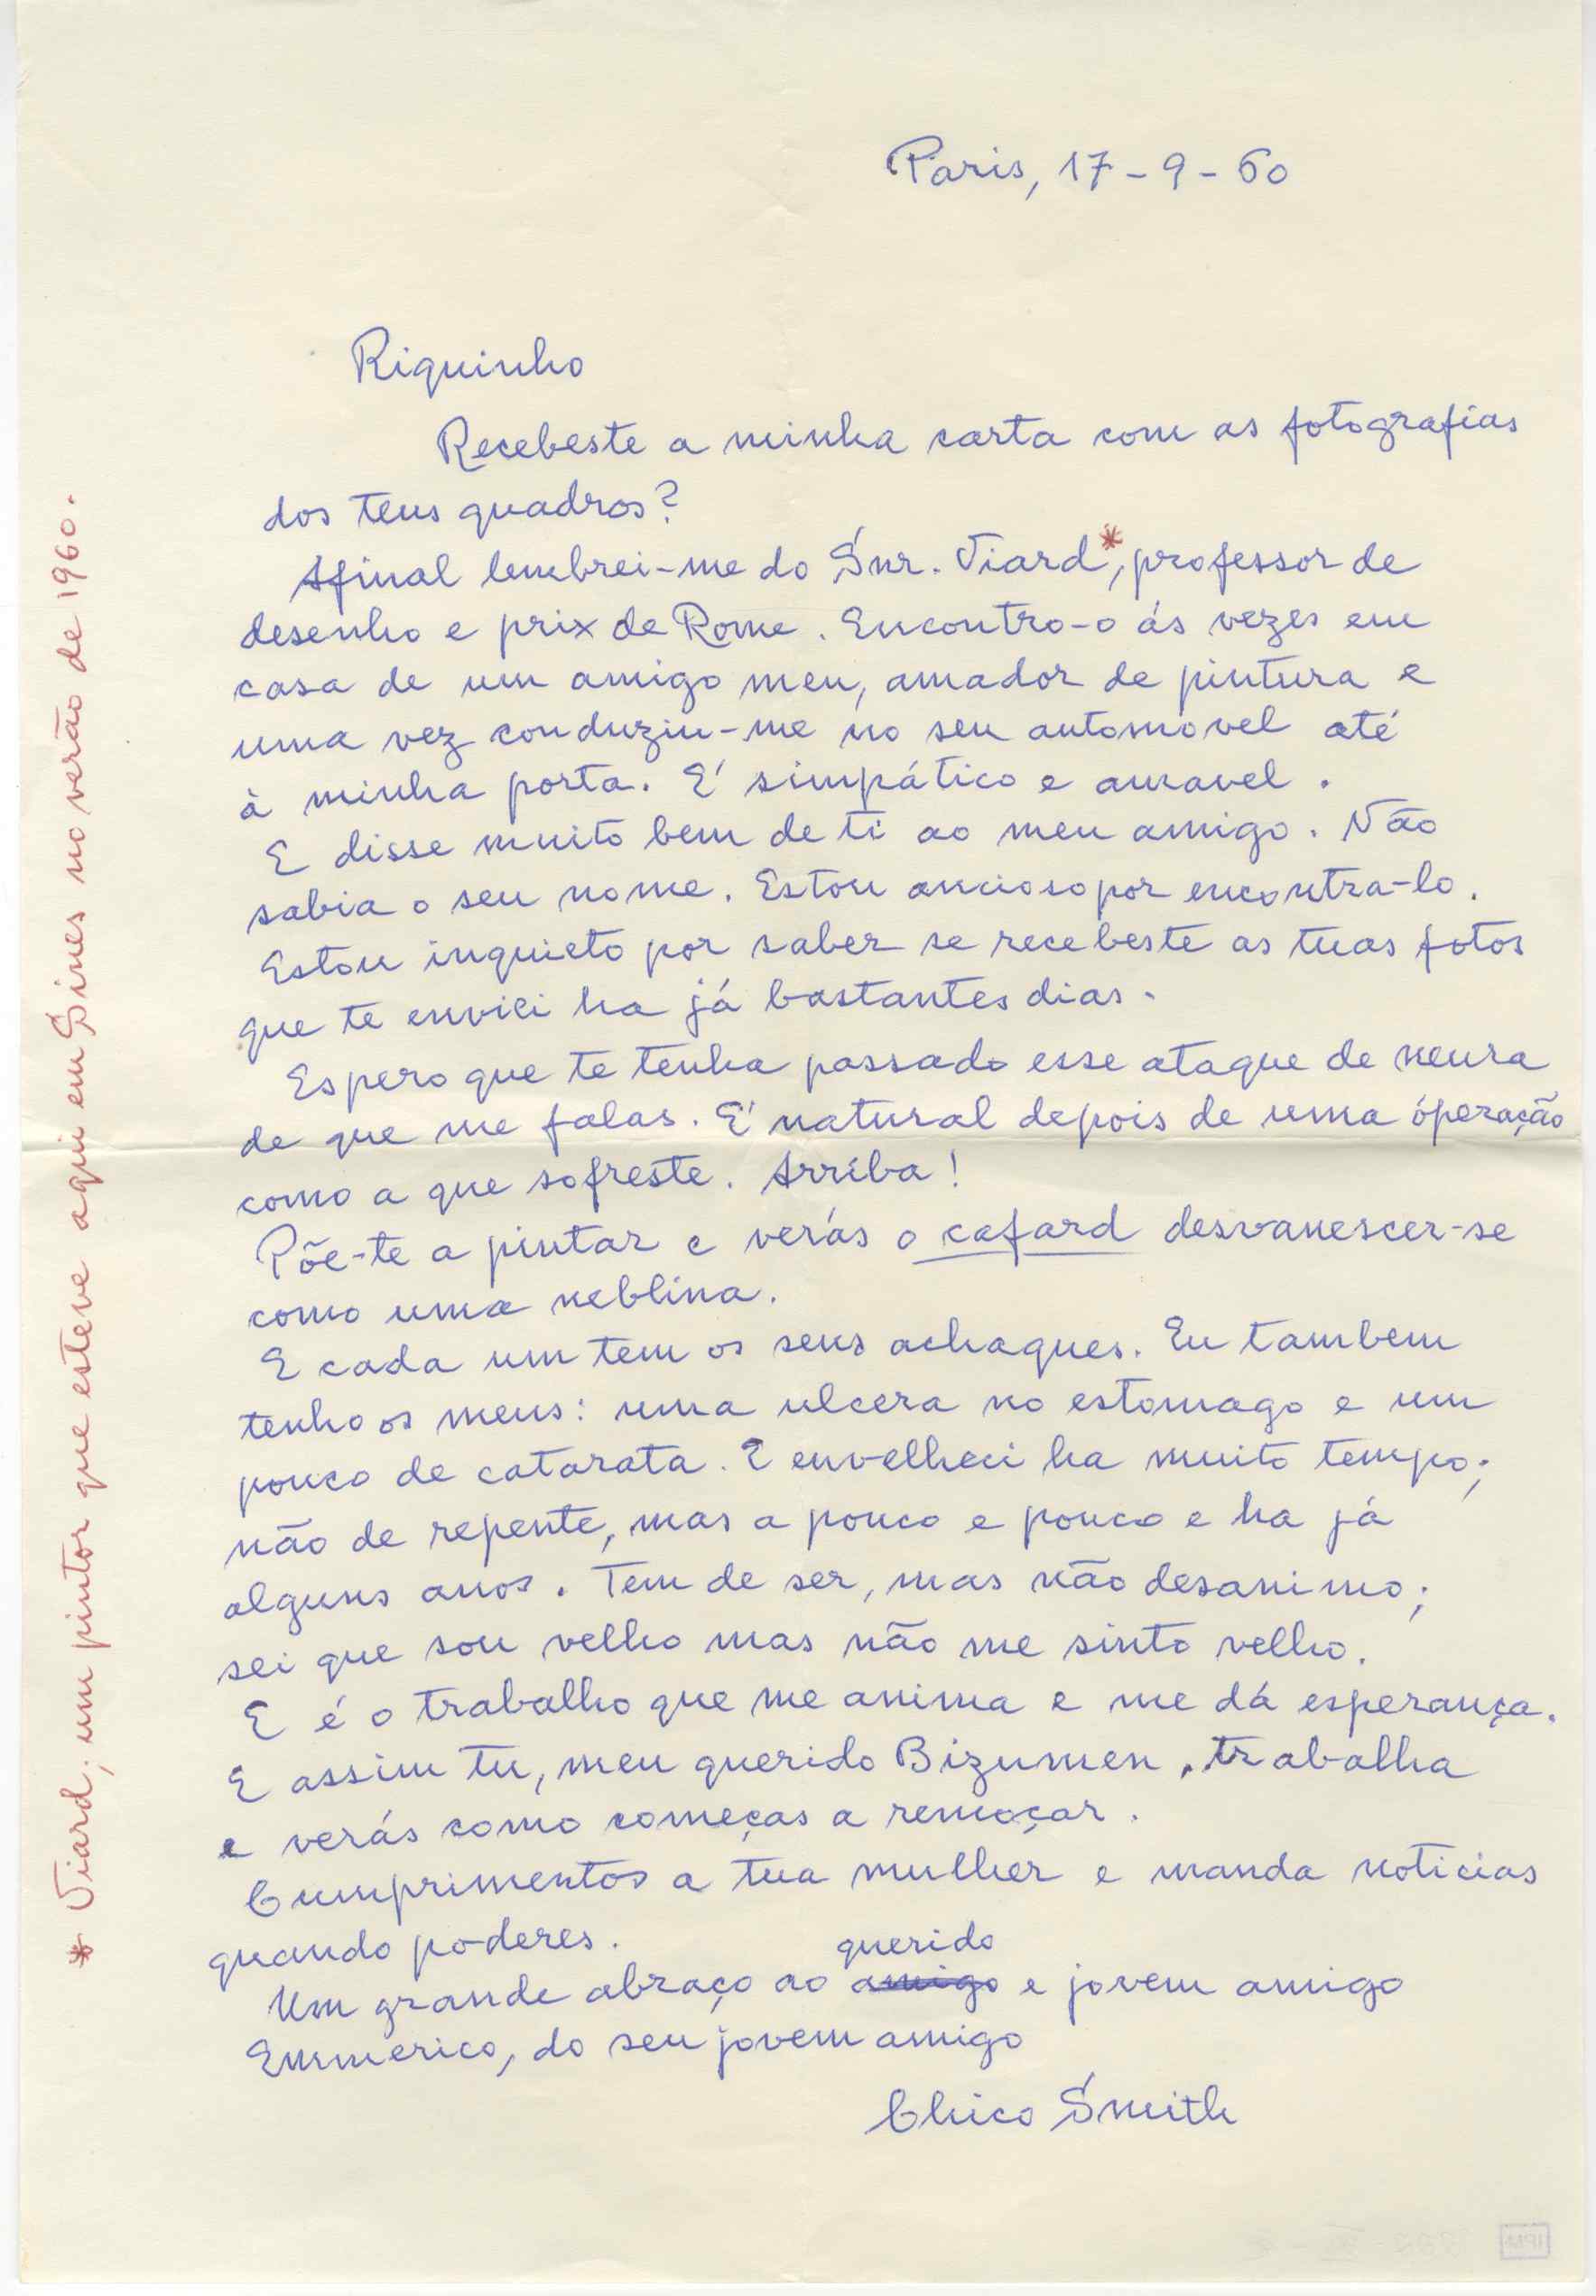 Paris, 17-9-60
Riquinho
Recebeste a minha carta com as fotografias
dos teus quadros?
Afinal lembrei-me do Snr. Viard*, professor de
desenho e prix de Rome. Encontro-o ás vezes em
casa de um amigo meu, amador de pintura e
uma vez conduziu-me no seu automovel até
à minha porta. E' simpático e amavel.
E disse muito bem de ti ao meu amigo. Não
sabia o seu nome. Estou ancioso por encontra-lo.
Estou inquieto por saber se recebeste as tuas fotos
que te enviei ha já bastantes dias.
Espero que te tenha passado esse ataque de neura
de que me falas. E' natural depois de uma óperação
como a que sofreste. Arriba!
Põe-te a pintar e verás o cafard desvanescer-se
como uma neblina.
E cada um tem os seus achaques. Eu tambem
tenho os meus: uma ulcera no estomago e um
pouco de catarata. E envelheci ha muito tempo;
não de repente, mas a pouco e pouco e ha já
alguns anos. Tem de ser, mas não desanimo;
sei que sou velho mas não me sinto velho.
E é o trabalho que me anima e me dá esperança.
E assim tu, meu querido Bizumen, trabalha
e verás como começas a remoçar.
Cumprimentos a tua mulher e manda noticias
quando poderes.
querido
Um grande abraço ao amigo e jovem amigo
Emmerico, do seu jovem amigo
Chico Smith
* Viard; um pintor que esteve aqui em Sines no verão de 1960.